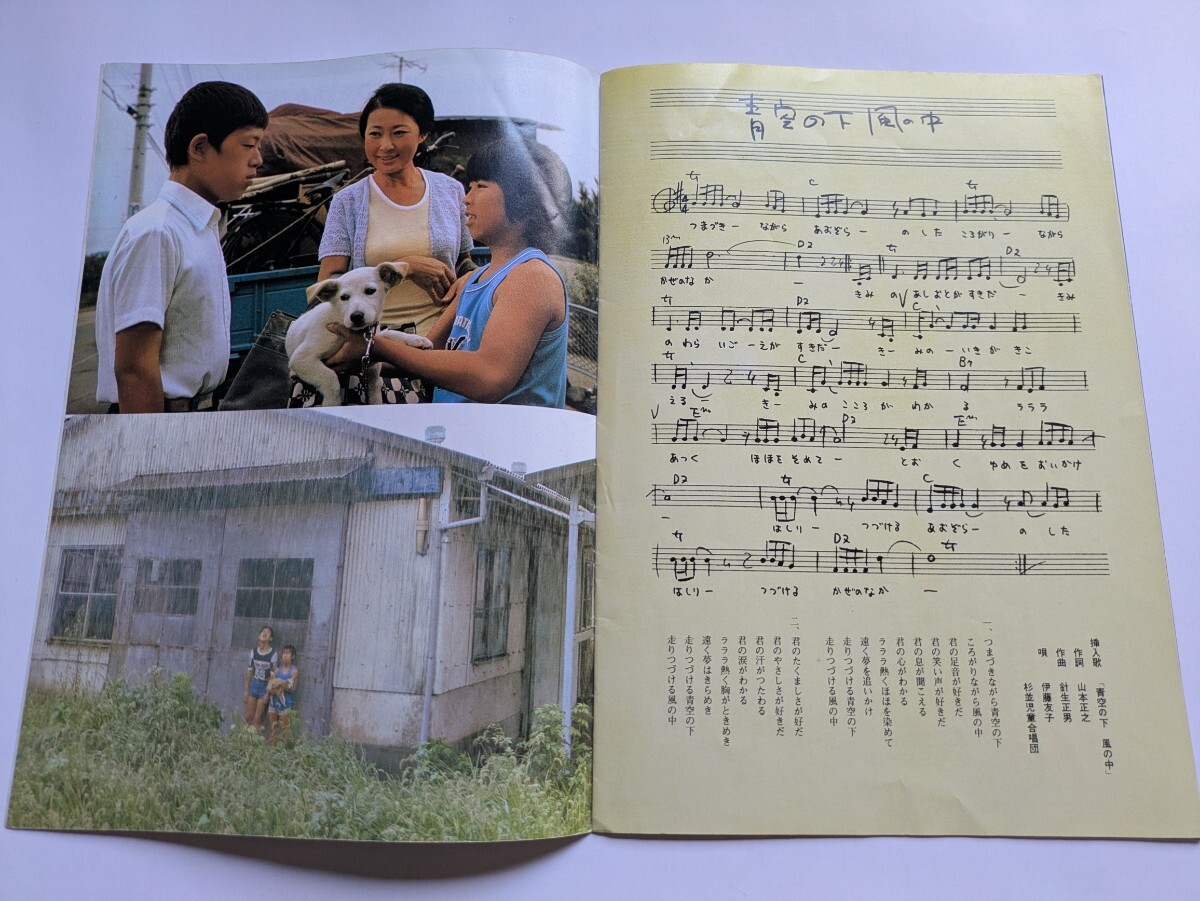 青空の下 風の中
G C G
つまづきー ながら あおぞらー のした ころがりー ながら
Bm D7 G D7
かぜのなか ー きみ のあしおとがすきだ ー きみ
G D7 C
のわら いごーえが すきだー きーみのーいきがきこ
G C B7
えるー きーみのこころがわかる ラララ
Em D7 Em
あっく ほほをそめてー とおく ゆめをおいかけ
D7 G C
ー はしりー つづける あおぞらー のした
G D7 G
はしりー つづける かぜのなか ー
挿入歌 「青空の下 風の中」
作詞 山本正之
作曲 針生正男
唄 伊藤友子
杉並児童合唱団
一、つまづきながら青空の下
ころがりながら風の中
君の足音が好きだ
君の笑い声が好きだ
君の息が聞こえる
君の心がわかる
ラララ熱くほほを染めて
遠く夢を追いかけ
走りつづける青空の下
走りつづける風の中
二、君のたくましさが好だ
君のやさしさが好きだ
君の汗がつたわる
君の涙がわかる
ラララ熱く胸がときめき
遠く夢はきらめき
走りつづける青空の下
走りつづける風の中